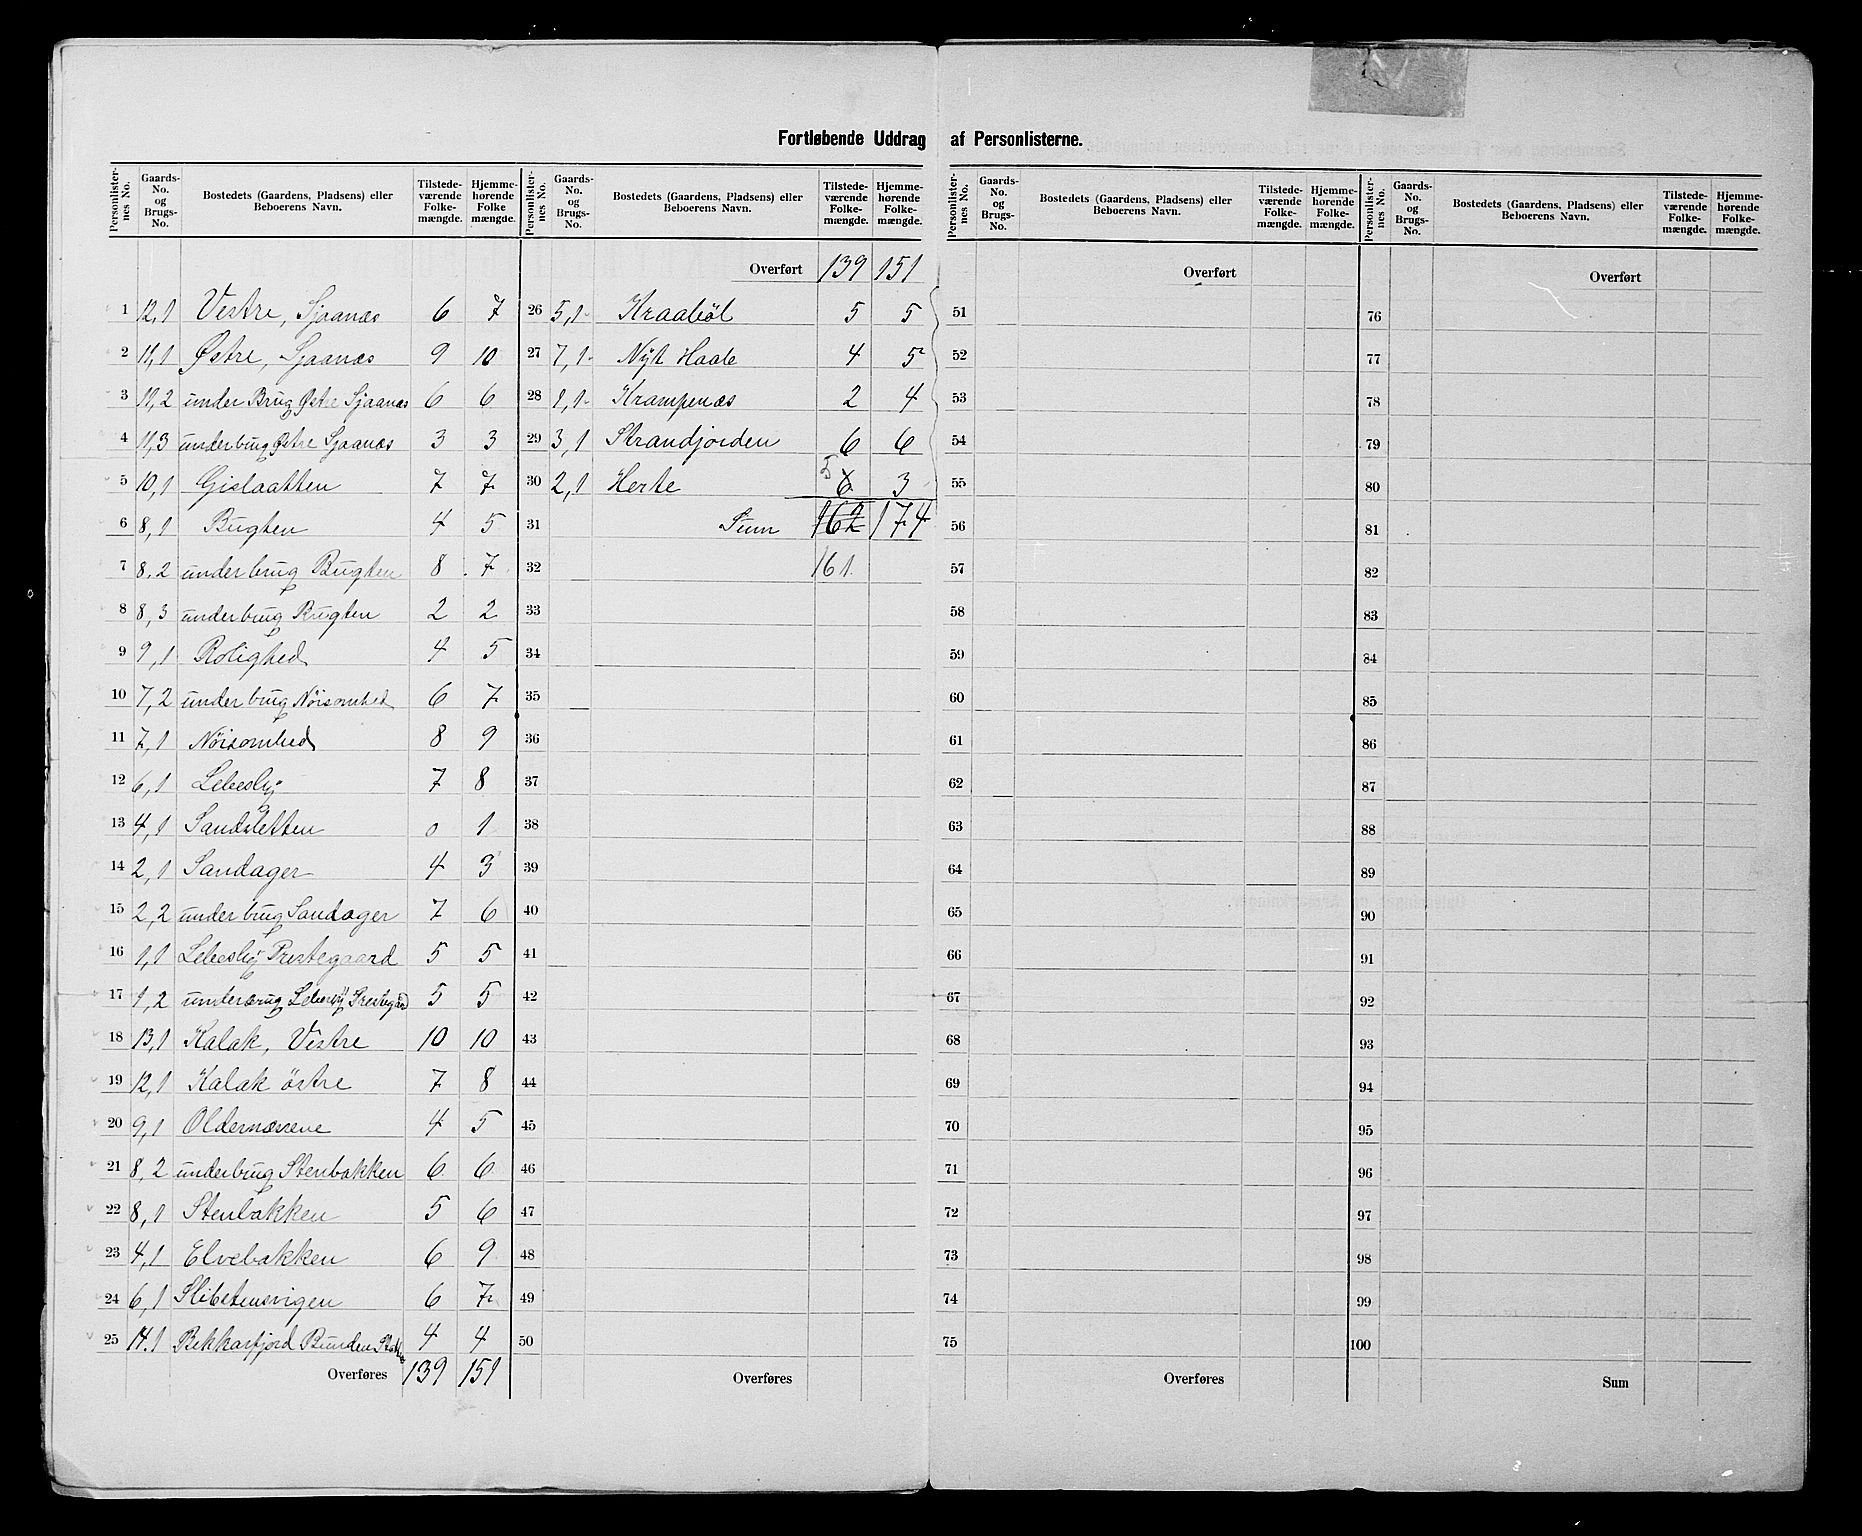 Fortløbende Uddrag af Personlisterne.
Personlister-nes No. | Gaards-No. og Brugs-No. | Bostedets (Gaardens, Pladsens) eller Beboerens Navn. | Tilstede-værende Folke-mængde. | Hjemme-hørende Folke mængde.
1 12,1 Vestre, Sjaanæs 6 7
2 11,1 Østre, Sjaanæs 9 10
3 11,2 under Brug Østre Sjaanæs 6 6
4 11,3 underbrug Østre Sjaanæs 3 3
5 10,1 Gislaatten 7 7
6 8,1 Bugten 4 5
7 8.2 underbrug Bugten 8 7
8 8,3 underbrug Bugten 2 2
9 9,1 Rolighed 4 5
10 7,2 underbrug Nöisomhed 6 7
11 7,1 Nöisomhed 8 9
12 6,1 Lebesby 7 8
13 4,1 Sandsletten 0 1
14 2,1 Sandager 4 3
15 2,2 underbrug Sandager 7 6
16 1,1 Lebesby Prestegaard 5 5
17 1,2 underbrug Lebesby Prestegård 5 5
18 13,1 Kalak, Vestre 10 10
19 12,1 Kalak östre 7 8
20 9,1 Oldernæsene 4 5
21 8,2 underbrug Stenbakken 6 6
22 8,1 Stenbakken 5 6
23 4,1 Elvebakken 6 9
24 6,1 Slibstensvigen 6 7
25 14.1 Bekkarfjord Bunden 4 4
Overføres 139 151
Personlister-nes No. | Gaards-No. og Brugs-No. | Bostedets (Gaardens, Pladsens) eller Beboerens Navn. | Tilstede-værende Folke-mængde. | Hjemme-hørende Folke-mængde.
Overført 139 151
26 5,1 Kraaböl 5 5
27 7,1 Nyt Haab 4 5
28 1,1 Krampenæs 2 4
29 3,1 Strandjorden 6 6
30 2,1 Herte 6 5 3
31 Sum 162 174
32 161
33
34
35
36
37
38
39
40
41
42
43
44
45
46
47
48
49
50
Overføres
Personlister-nes No. | Gaards-No. og Brugs-No. | Bostedets (Gaardens, Pladsens) eller Beboerens Navn. | Tilstede-værende Folke-mængde. | Hjemme-hørende Folke-mængde.
Overført
51
52
53
54
55
56
57
58
59
60
61
62
63
64
65
66
67
68
69
70
71
72
73
74
75
Overføres
Personlister-nes No. | Gaards-No. og Brugs-No. | Bostedets (Gaardens, Pladsens) eller Beboerens Navn. | Tilstede-værende Folke-mængde. | Hjemme-hørende Folke-mængde.
Overført
76
77
78
79
80
81
82
83
84
85
86
87
88
89
90
91
92
93
94
95
96
97
98
99
100
Sum